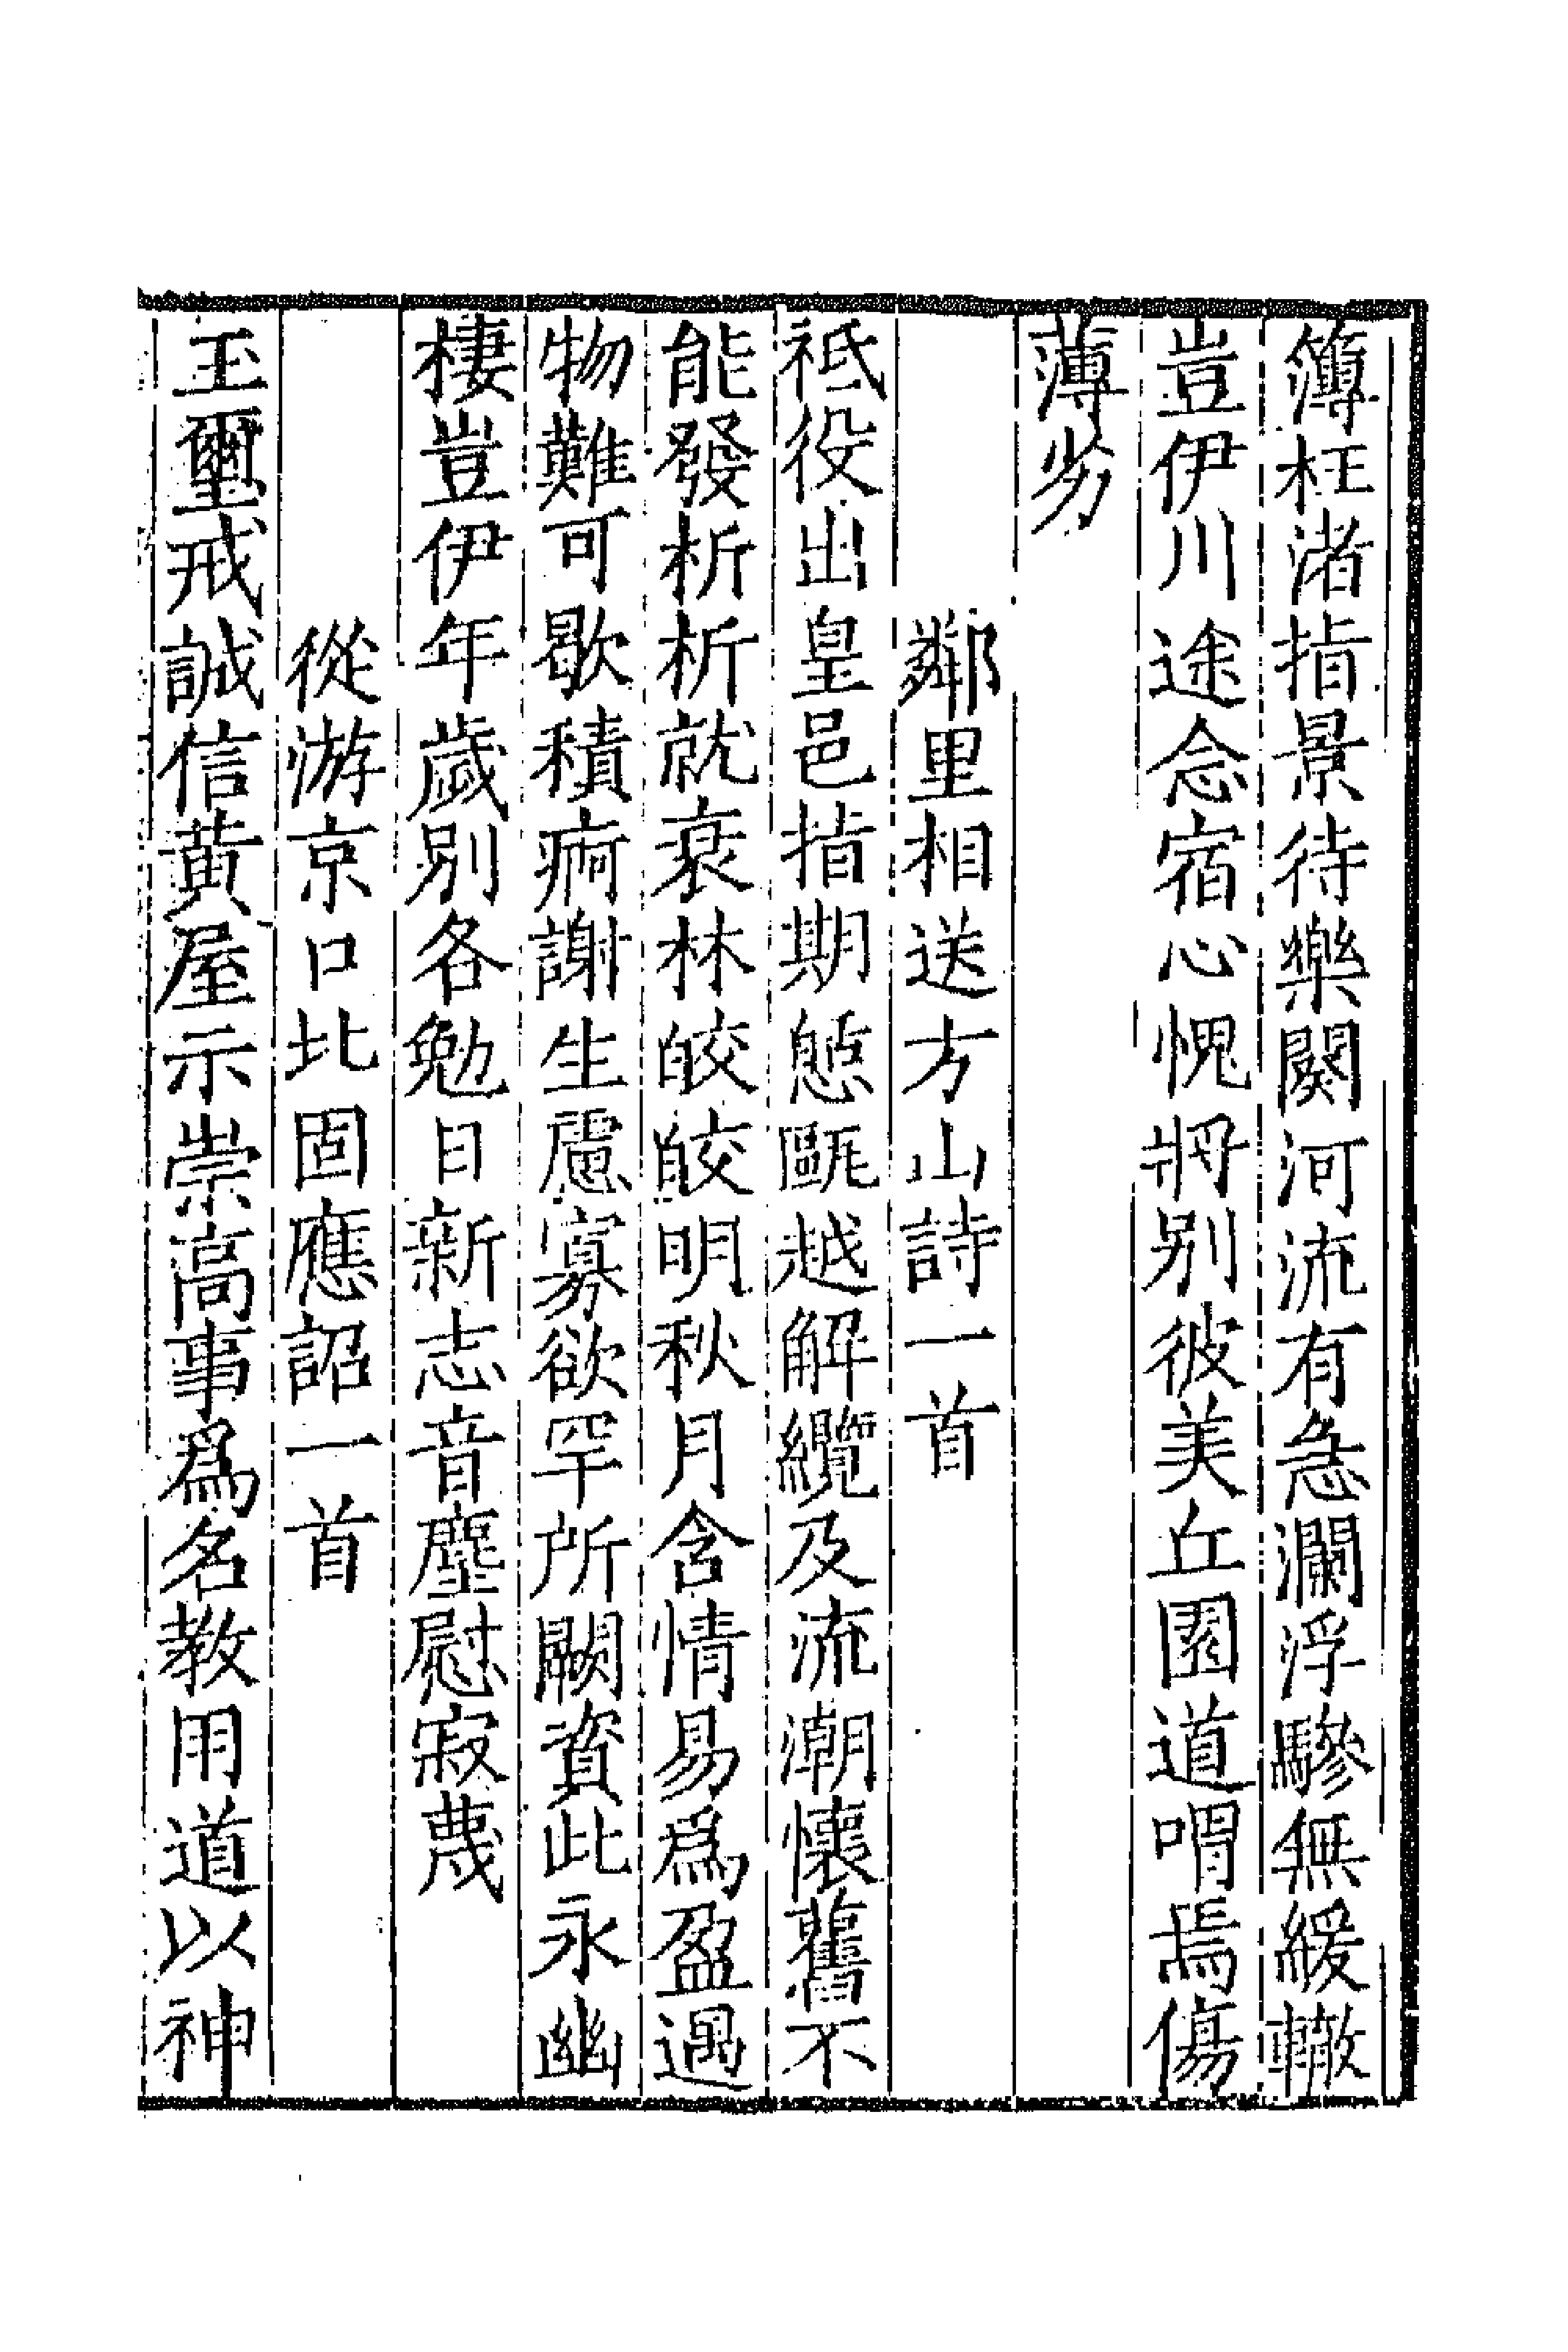 簿枉渚指景待樂闋河流有急瀾浮驂無緩轍
豈伊川途念宿心愧將别彼美丘園道喟焉傷
薄劣
鄰里相送方山詩一首
祗役出皇邑指期憩甌越解纜及流潮懷舊不
能發析析就衰林皎皎明秋月含情易爲盈遇
物難可歇積痾謝生慮寡欲罕所闕資此永幽
棲豈伊年歲别各勉日新志音塵慰寂蔑
從游京口北固應詔一首
玉璽戒誠信黃屋示崇高事爲名教用道以神